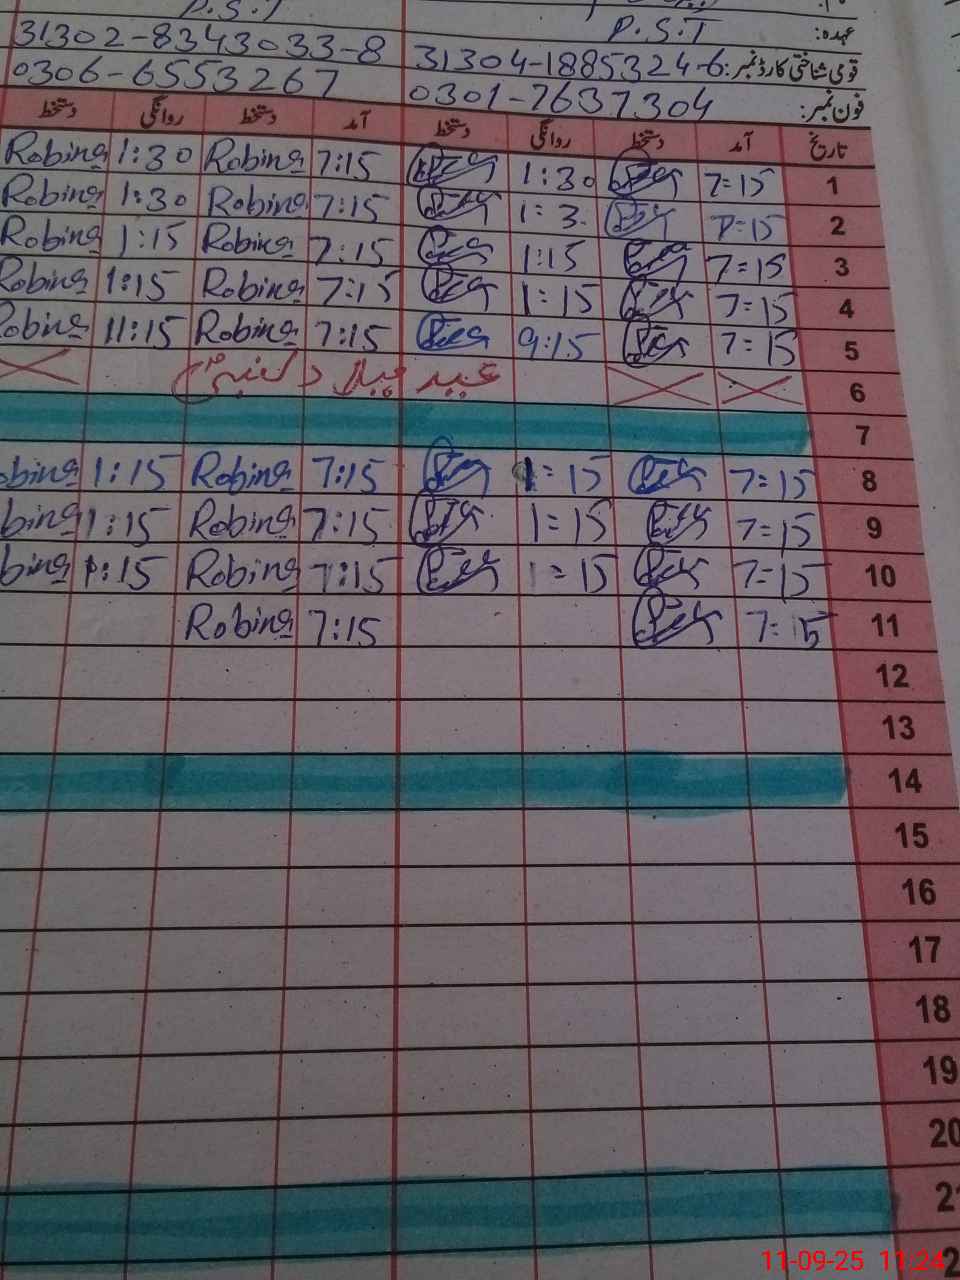 P.S.T P.S.T
عہدہ: P.S.T
قومی شناختی کارڈ نمبر: 31304-1885324-6 31302-8343033-8
فون نمبر: 0301-7637304 0306-6553267
تاریخ آمد دستخط روانگی دستخط آمد دستخط روانگی دستخط
1 7=15 1:30 7:15 Robina 1:30 Robina
2 7=15 1=3. 7:15 Robina 1:30 Robina
3 7=15 1:15 7:15 Robina 1:15 Robina
4 7=15 1=15 7:15 Robina 1:15 Robina
5 7=15 9:15 7:15 Robina 11:15 Robina
6 عید میلاد النبیؐ
7
8 7=15 1=15 7:15 Robina 1:15 obina
9 7=15 1=15 7:15 Robina 1:15 bina
10 7=15 1=15 7:15 Robina 1:15 bina
11 7=15 7:15 Robina
12
13
14
15
16
17
18
19
20
21
11-09-25 11:24